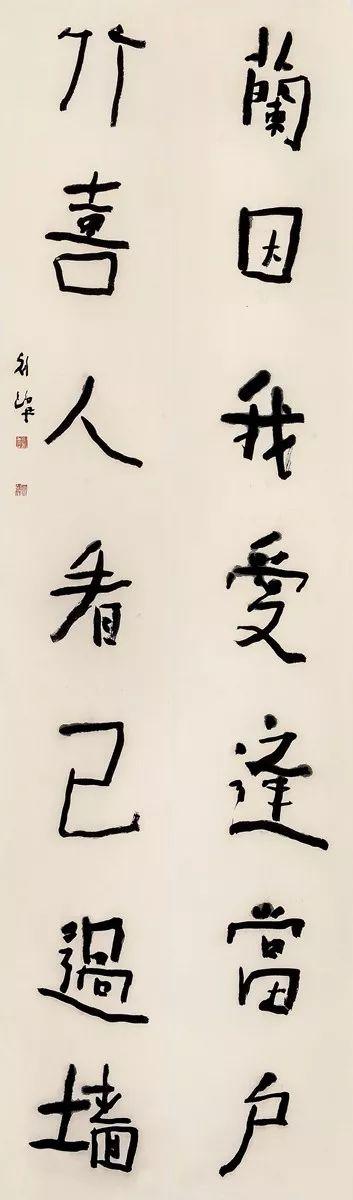 蘭因我愛逢當户
竹喜人看已過墙